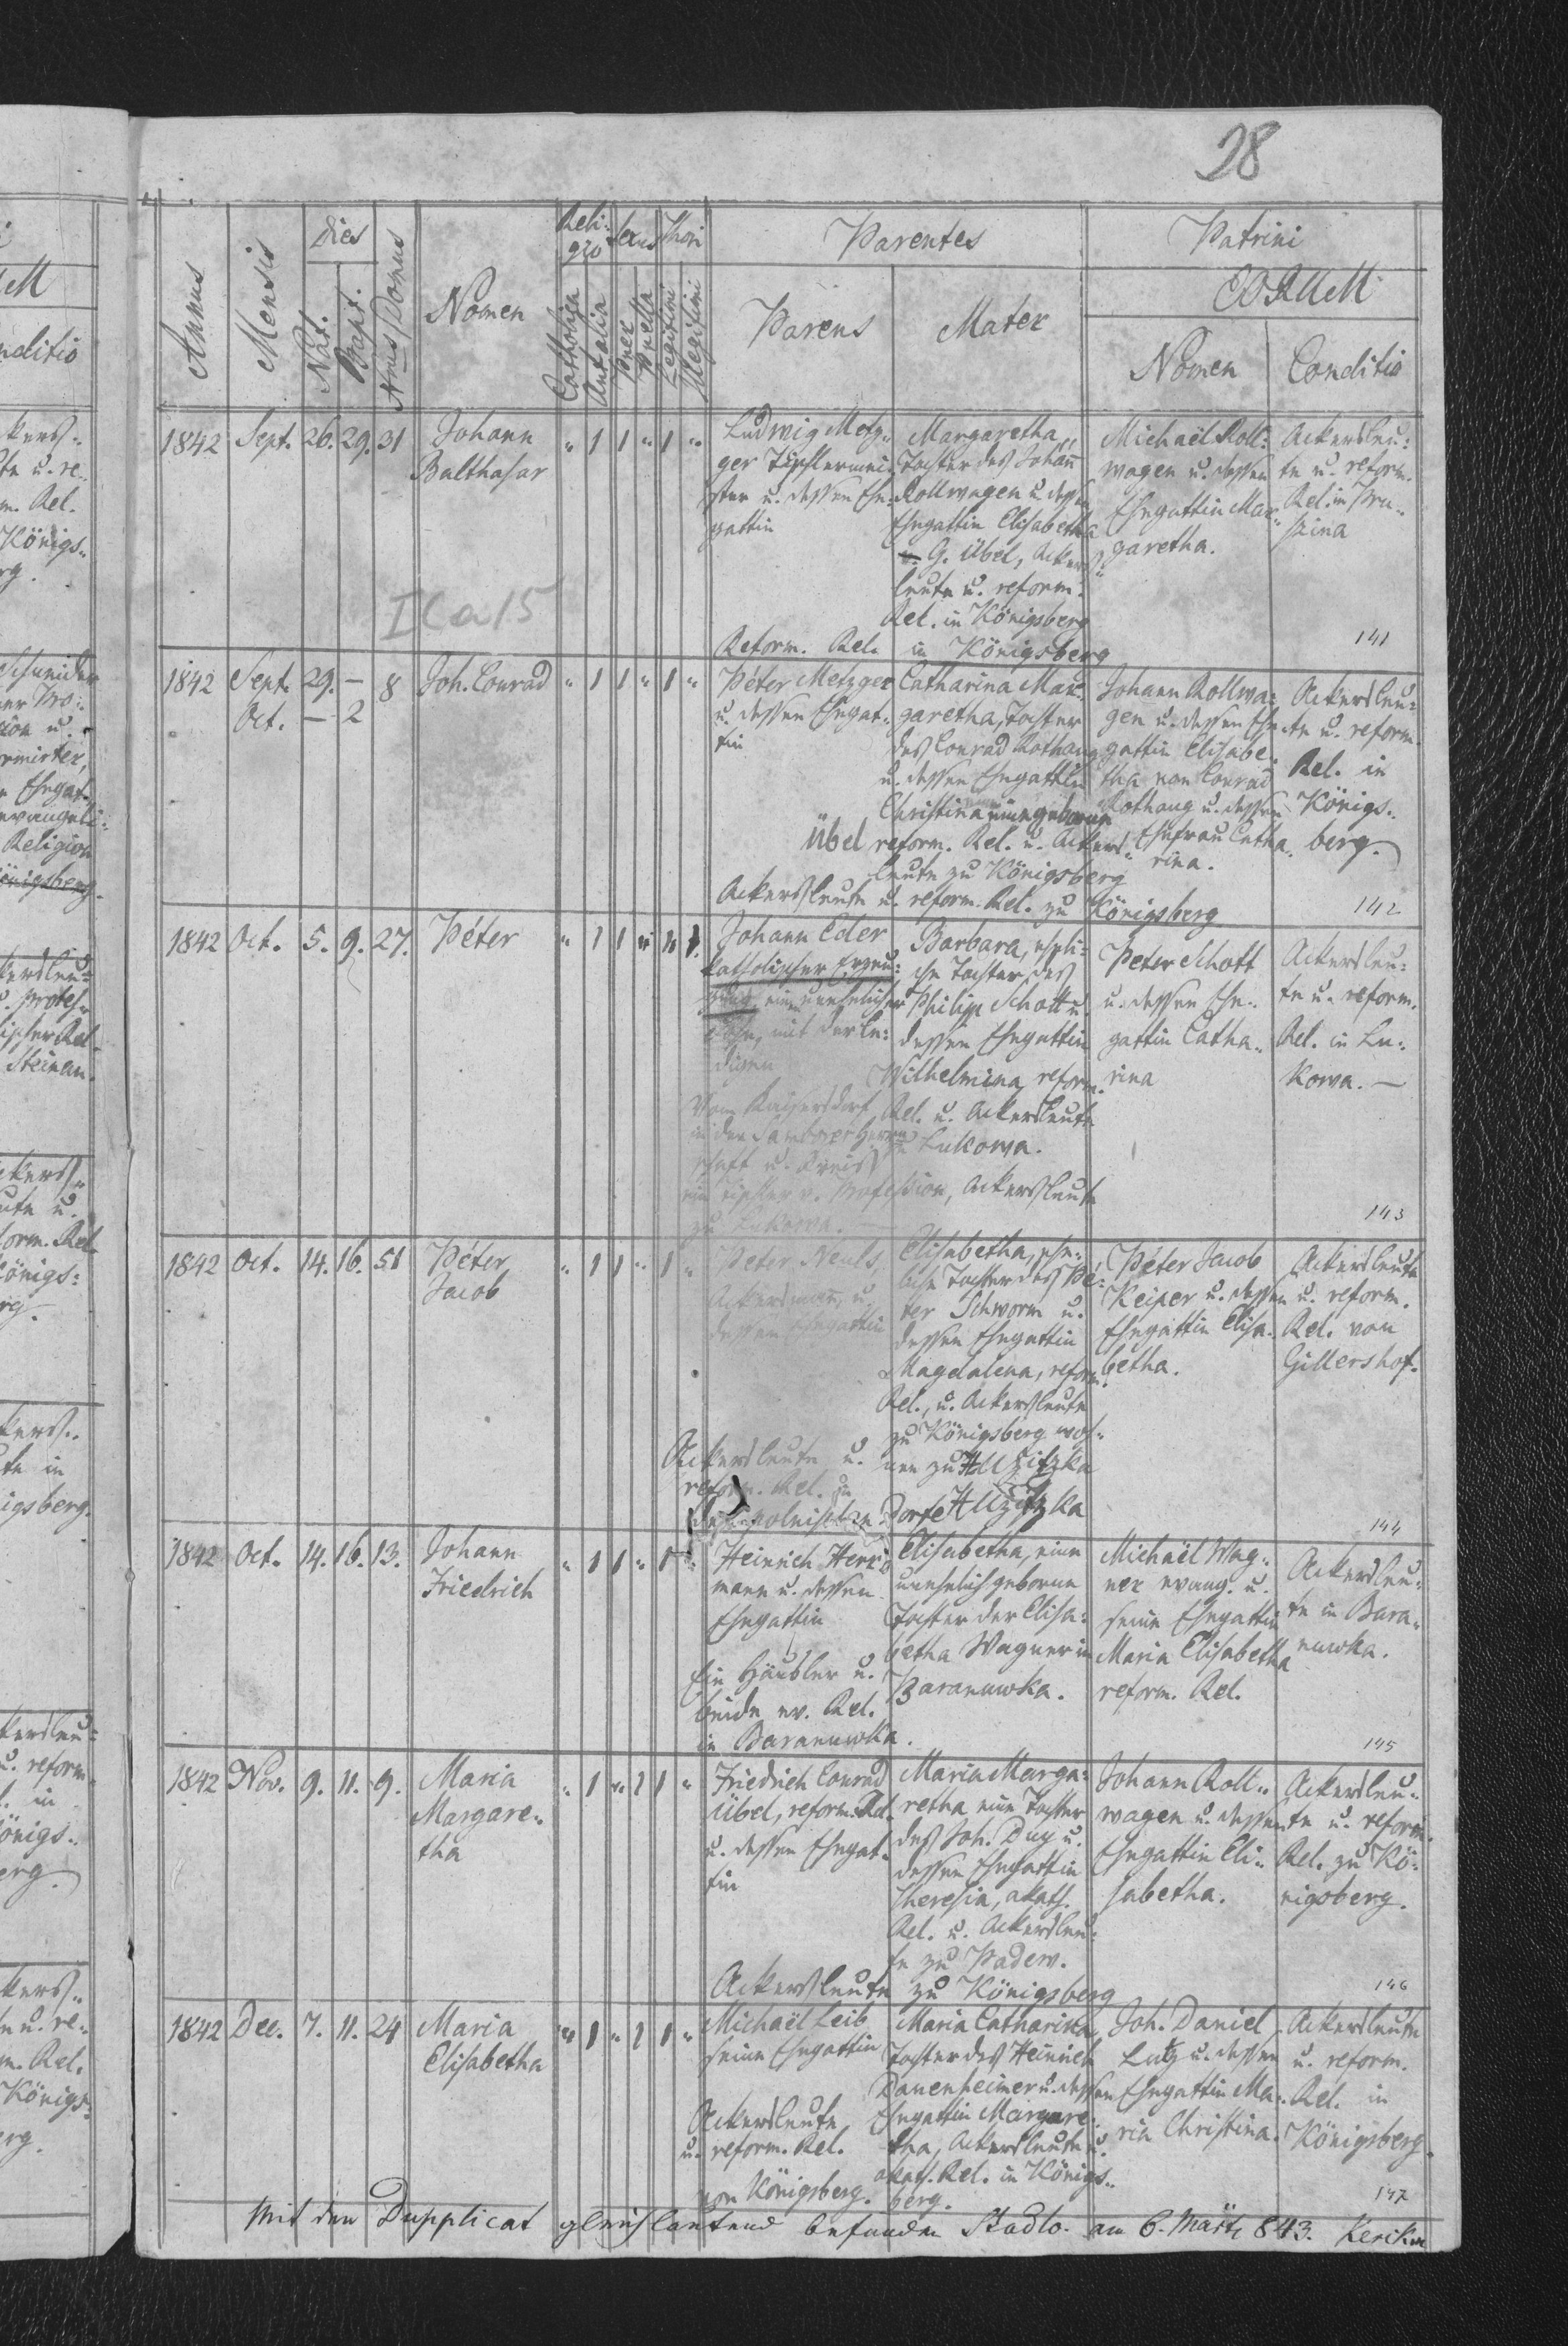 28
Annus Mensis Dies Nat. Bapt. Nrus Domus Nomen Religio Catholica Aut alia Sexus Puer Puella Thori Legitimi Illegitimi Parentes Parens Mater Patrini Nomen Conditio
1842 Sept. 26. 29. 31
Johann
Balthasar
" 1 1 " 1 "
Ludwig Metz„
ger Tischlermei„
ster u. dessen Ehe„
gattin
Margaretha,
Tochter des Johann
Rollwagen u. dessen
Ehegattin Elisabetha
G. Übel, Ackers„
leute u. reform.
Rel. in Königsberg
Reform. Rel. in Königsberg
Michaël Roll:
wagen u. dessen
Ehegattin Mar„
garetha.
Ackersleu:
te u. reform.
Rel. in
141
1842 Sept. 29. — 8
Oct. — 2
Joh. Conrad
" 1 1 " 1 "
Péter Metzger
u. dessen Ehegat„
tin
Catharina Mar:
garetha, Tochter
des Conrad Rothaug
u. dessen Ehegattin
Christina
Übel reform. Rel. u. Ackers„
leute zu Königsberg
Ackersleute u. reform. Rel. zu Königsberg
Johann Rollwa:
gen u. dessen Ehe„
gattin Elisabe„
tha von Conrad
Rothaug u. dessen
Ehefrau Catha„
rina.
Ackersleu:
te u. reform.
Rel. in
Königs„
berg.
142
1842 Oct. 5. 9. 27.
Péter
Johann Eder
katholischer
mit der le:
digen
Vom Kaisersdorf
in der Samborer Herr„
schaft u. Kreis
ein v. Profession, Ackersleute
zu Lukowa. —
Barbara, eheli:
che Tochter des
Philip Schott u.
dessen Ehegattin
Wilhelmina, reform.
Rel. u. Ackersleute
zu Lukowa.
Peter Schott
u. dessen Ehe„
gattin Catha„
rina
Ackersleu:
te u. reform.
Rel. in Lu:
kowa. —
143
1842 Oct. 14. 16. 51
Péter
Jacob
" 1 1 " 1 "
Peter Neuls,
Ackersmann, u.
dessen Ehegattin
Elisabetha, ehe„
liche Tochter des Pé:
ter Schworm u.
dessen Ehegattin
Magdalena, reform.
Rel., u. Ackersleute
zu Königsberg woh„
nen zu Huzitzka
Ackersleute u.
reform. Rel. in
polnischen Dorfe Huzitzka
Péter Jacob
Keiper u. dessen
Ehegattin Elisa„
betha.
Ackersleute
u. reform.
Rel. von
Gillershof.
144
1842 Oct. 14. 16. 13.
Johann
Friedrich
Heinrich Herr„
mann u. dessen
Ehegattin
Ein Häusler u.
beide ev. Rel.
in Baranuwka.
Elisabetha, eine
unehelich geborene
Tochter der Elisa:
betha Wagner in
Baranuwka.
Michaël Wag„
ner evang. u.
seine Ehegattin
Maria Elisabetha
reform. Rel.
Ackersleu:
te in Bara„
nuwka.
145
1842 Nov. 9. 11. 9.
Maria
Margare„
tha
" 1 " 1 1 "
Friedrich Conrad
Übel, reform. Rel.
u. dessen Ehegat„
tin
Maria Marga:
retha eine Tochter
des Joh. Duy u.
dessen Ehegattin
Theresia, akath.
Rel. u. Ackersleu:
te zu Padew.
Ackersleute zu Königsberg
Johann Roll„
wagen u. dessen
Ehegattin Eli„
sabetha.
Ackersleu„
te u. reform.
Rel. zu Kö:
nigsberg.
146
1842 Dec. 7. 11. 24
Maria
Elisabetha
" 1 " 1 1 "
Michaël Leib
seine Ehegattin
Ackersleute
u. reform. Rel.
von Königsberg.
Maria Catharina,
Tochter des Heinrich
Dauenheimer u. dessen
Ehegattin Margare„
tha, Ackersleute u.
akath. Rel. in Königs„
berg.
Joh. Daniel
Lutz u. dessen
Ehegattin Ma„
ria Christina.
Ackersleute
u. reform.
Rel. in
Königsberg.
147
Mit den Dupplicat gleichlautend befunden Stadlo. am 6. März 843.